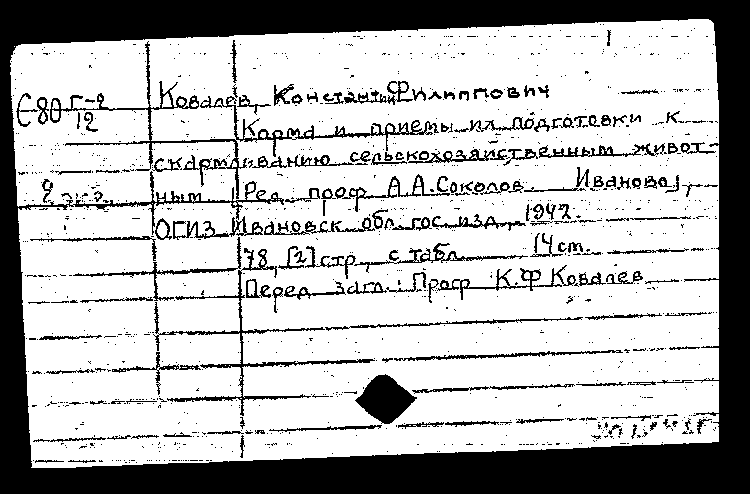 Е80 Г-2
12
Ковалев, Константин Филиппович
Корма и приемы их подготовки к
скармливанию сельскохозяйственным живот-
2 экз.
ным. Ред. проф А.А.Соколов. Иваново,
ОГИЗ Ивановск обл. гос. изд., 1942.
78, [2] стр., с табл. 14 см.
Перед загл.: Проф К.Ф Ковалев